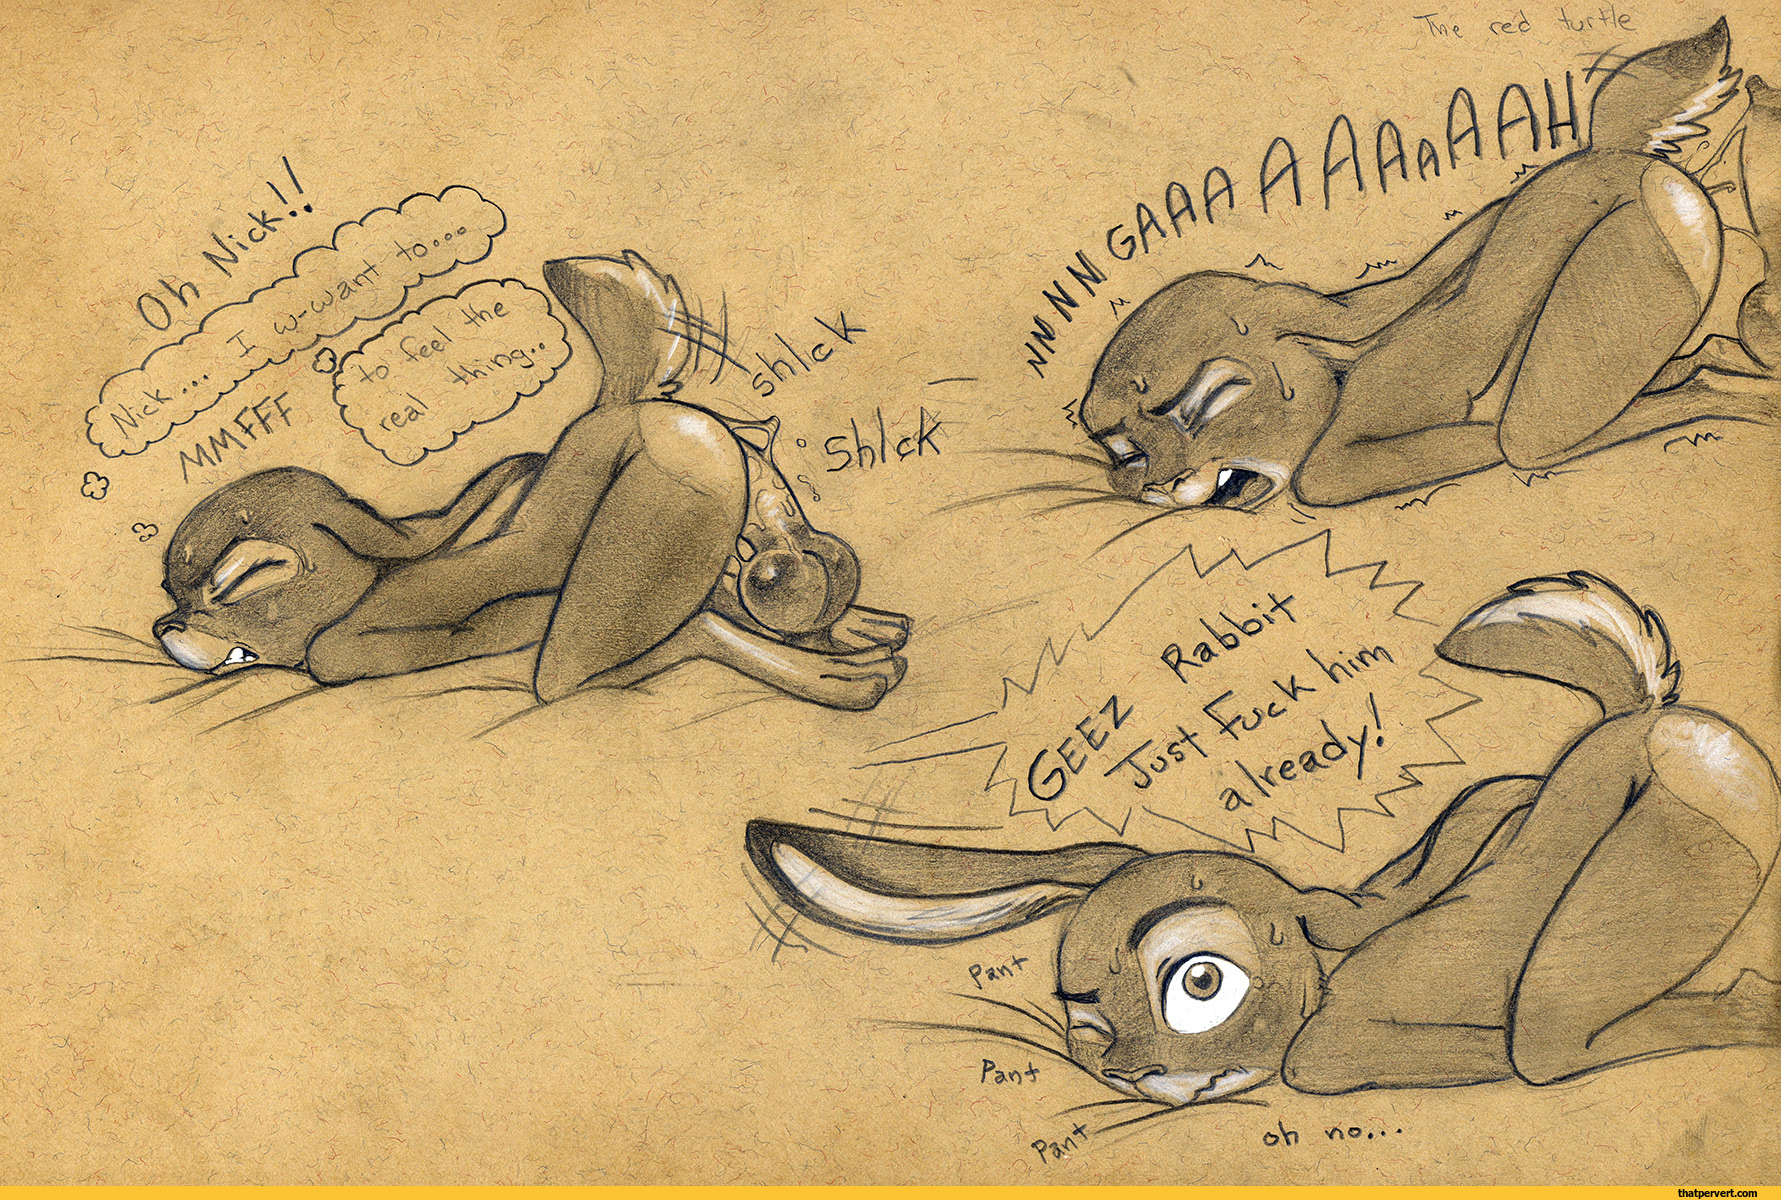 The red turtle
Oh Nick!!
Nick... I w-want to...
to feel the
real thing..
MMFFF
shlck
shlck
NNNNNGAAAAAAAAAAAH
GEEZ Rabbit
Just Fuck him
already!
Pant
Pant
Pant
oh no...
thatpervert.com